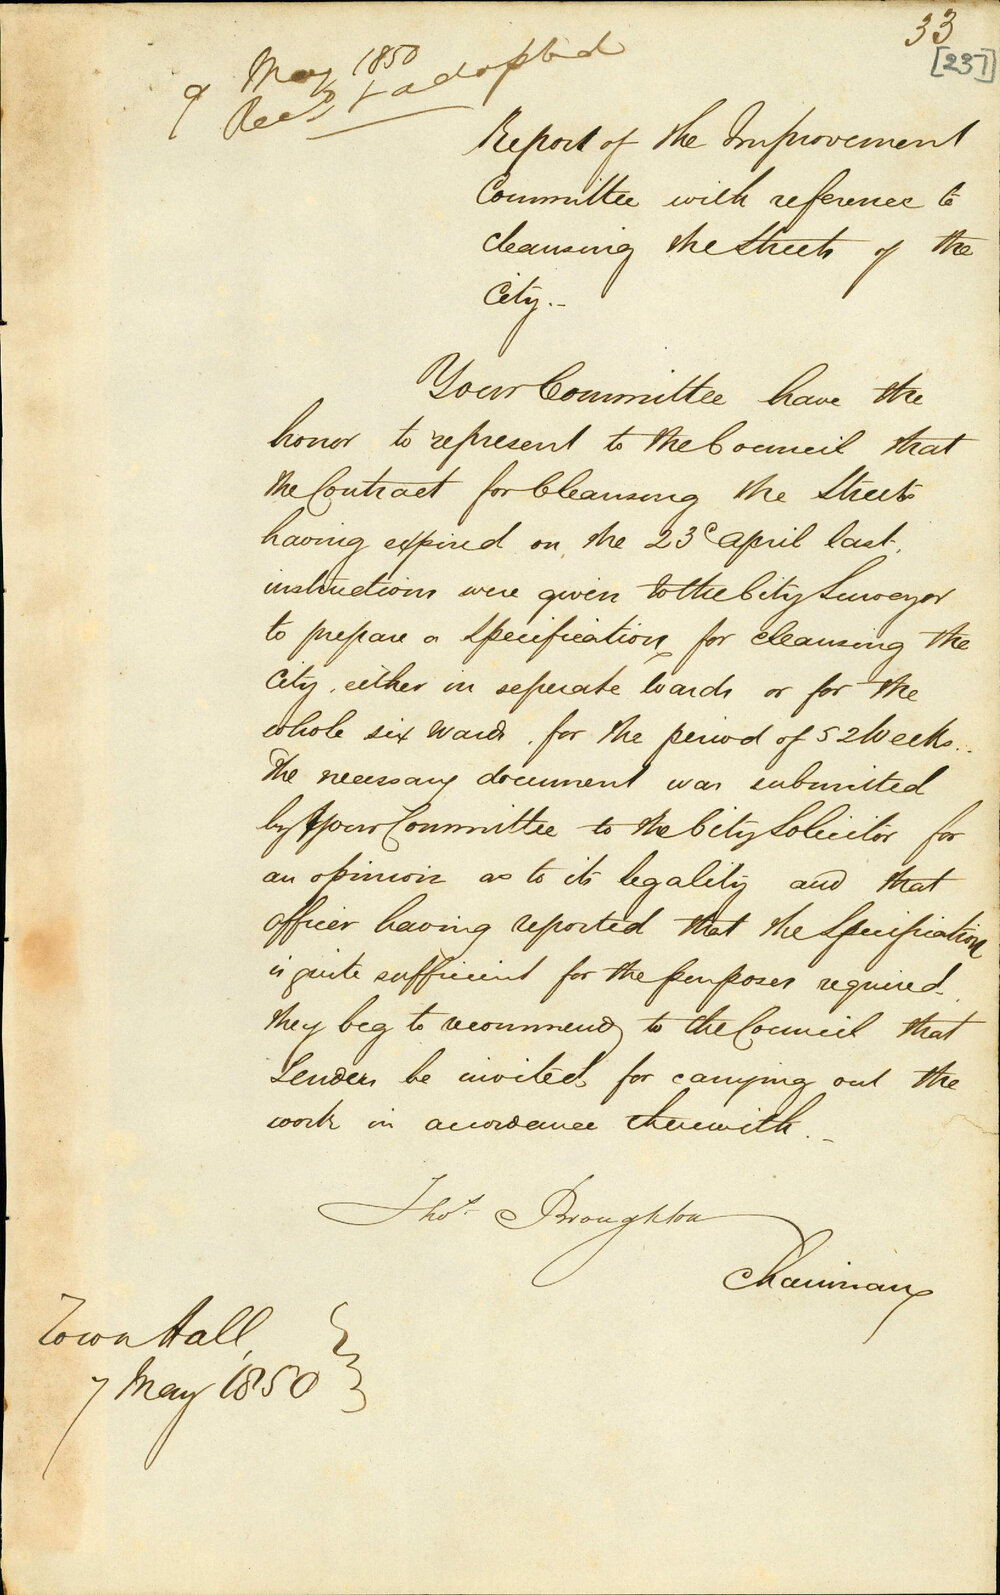 33
[237]
9 May 1850
Recd & adopted
Report of the Improvement
Committee with reference to
cleansing the Streets of the
City.-
Your Committee have the
honor to represent to the Council that
the Contract for Cleansing the Streets
having expired on the 23d April last,
instructions were given to the City Surveyor
to prepare a Specification for cleansing the
City, either in seperate Wards or for the
whole six Wards, for the period of 52 Weeks.
The necessary document was submitted
by your Committee to the City Solicitor for
an opinion as to its legality and that
officer having reported that the Specification
is quite sufficient for the purposes required
they beg to recommend to the Council that
Tenders be invited for carrying out the
work in accordance therewith.-
Thos. Broughton
Chairman
Town Hall
7 May 1850